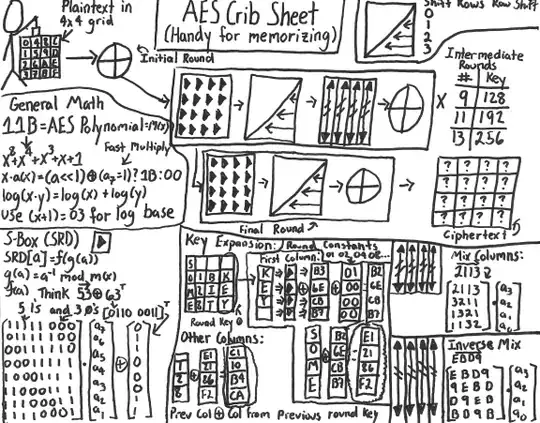 Plaintext in
4x4 grid
AES Crib Sheet
(Handy for memorizing)
Shift Rows Row Shift
0
1
2
3
Initial Round
Intermediate
Rounds
# Key
9 128
11 192
13 256
X
General Math
11B=AES Polynomial=M(x)
x⁸+x⁴+x³+x+1
Fast Multiply
x·a(x)=(a<<1)⊕(a₇=1)?1B:00
log(x·y)=log(x)+log(y)
use (x+1)=03 for log base
Final Round
? ? ? ?
? ? ? ?
? ? ? ?
? ? ? ?
Ciphertext
S-Box (SRD)
SRD[a]=f(g(a))
g(a)=a⁻¹ mod m(x)
f(a) Think 53⊕63ᵀ
5 1's and 3 0's [0110 0011]ᵀ
Key Expansion:
Round Constants
01 02 04 08...
First Column:
S
O 1 B K
M 2 I E
E 8 T Y
Round Key 0
K B3 01 B2
E 6E 00 6E
Y CB 00 CB
B7 00 B7
Other Columns:
T E1 C1
21 10
2 86 B4
8 F2 CA
S B2 E1
O 6E 21
M CB 86
E B7 F2
Prev Col ⊕ Col from Previous round key
Mix Columns:
2113
2113 a₃
3211 a₂
1321 a₁
1132 a₀
Inverse Mix
EBD9
EBD9 a₃
9EBD a₂
D9EB a₁
BD9E a₀